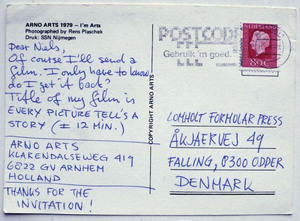 ARNO ARTS 1979 – I'm Arts
Photographed by Rens Plaschek
Druk: SSN Nijmegen
Dear Niels,
Of course I'll send a
film. I only have to know:
do I get it back?
Title of my film is
EVERY PICTURE TELL'S A
STORY (± 12 MIN.)
ARNO ARTS
KLARENDALSEWEG 419
6822 GV ARNHEM
HOLLAND
THANKS FOR THE
INVITATION!
COPYRIGHT ARNO ARTS
POSTCODE
Gebruik 'm goed.
NEDERLAND
80c
LOMHOLT FORMULAR PRESS
ÅKJAERVEJ 49
FALLING, 8300 ODDER
DENMARK